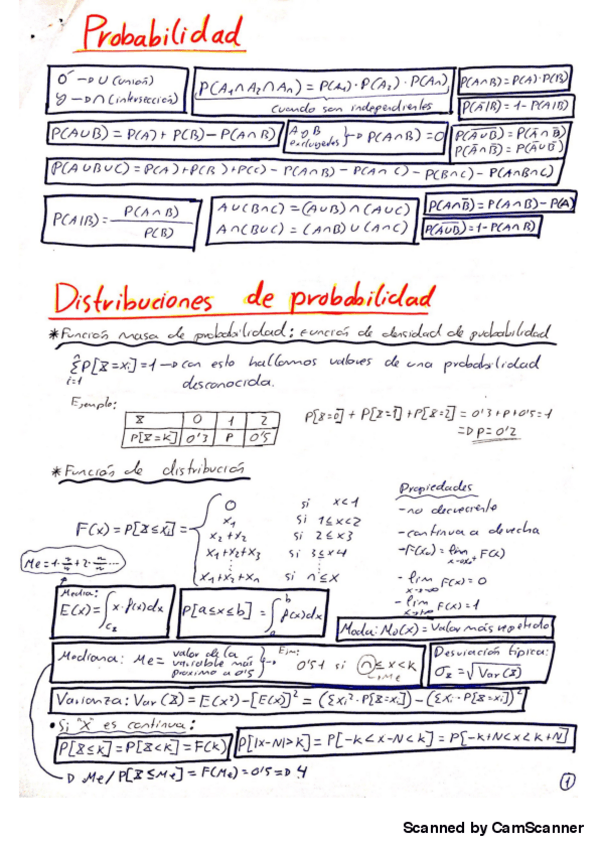 Probabilidad
O → ∪ (unión)
Y → ∩ (intersección)
P(A₁∩A₂∩Aₙ) = P(A₁)·P(A₂)·P(Aₙ)
cuando son independientes
P(A∩B)=P(A)·P(B)
P(Ā|B)=1-P(A|B)
P(A∪B) = P(A) + P(B) - P(A∩B)
A y B
→ P(A∩B)=0
P(Ā∪B̄) = P(A∩B)
P(Ā∩B̄) = P(A∪B)
P(A∪B∪C) = P(A)+P(B)+P(C) - P(A∩B) - P(A∩C) - P(B∩C) - P(A∩B∩C)
P(A|B) = P(A∩B) / P(B)
A∪(B∩C) = (A∪B)∩(A∪C)
A∩(B∪C) = (A∩B)∪(A∩C)
P(A∩B̄) = P(A∩B) - P(A)
P(Ā∪B̄) = 1-P(A∩B)
Distribuciones de probabilidad
*Función masa de probabilidad: Función de densidad de probabilidad
Σ P[X=xi]=1 → con esto hallamos valores de una probabilidad
i=1
desconocida.
Ejemplo:
X 0 1 2
P[X=k] 0'3 P 0'5
P[X=0] + P[X=1] + P[X=2] = 0'3+P+0'5=1
=> P=0'2
*Función de distribución
F(x) = P[X≤xi] =
0 si x<1
x₁ si 1≤x<2
x₁+x₂ si 2≤x3
x₁+x₂+x₃ si 3≤x4
⋮
x₁+x₂+xₙ si n≤x
Propiedades
-no decreciente
-continua a derecha
-F(x₀)= lim F(x)
x→x₀⁺
- lim F(x)=0
x→-∞
- lim F(x)=1
x→+∞
Media:
E(x)=∫ x·f(x)dx
P[a≤x≤b] = ∫ₐᵇ f(x)dx
Moda: Mo(x) = Valor más repetido
Mediana: Me = valor de la variable más próximo a 0'5
Ejm: 0'51 si n≤x<k
→Me
Desviación típica:
σx = √Var(X)
Varianza: Var(X) = E(x²) - [E(x)]² = (Σxi²·P[X=xi]) - (Σxi·P[X=xi])²
• Si "X" es continua:
P[X≤k] = P[X<k] = F(k)
P[|x-N|>k] = P[-k<x-N<k] = P[-k+N<x<k+N]
→ Me / P[X≤Me] = F(Me) = 0'5 => 4
1
Scanned by CamScanner